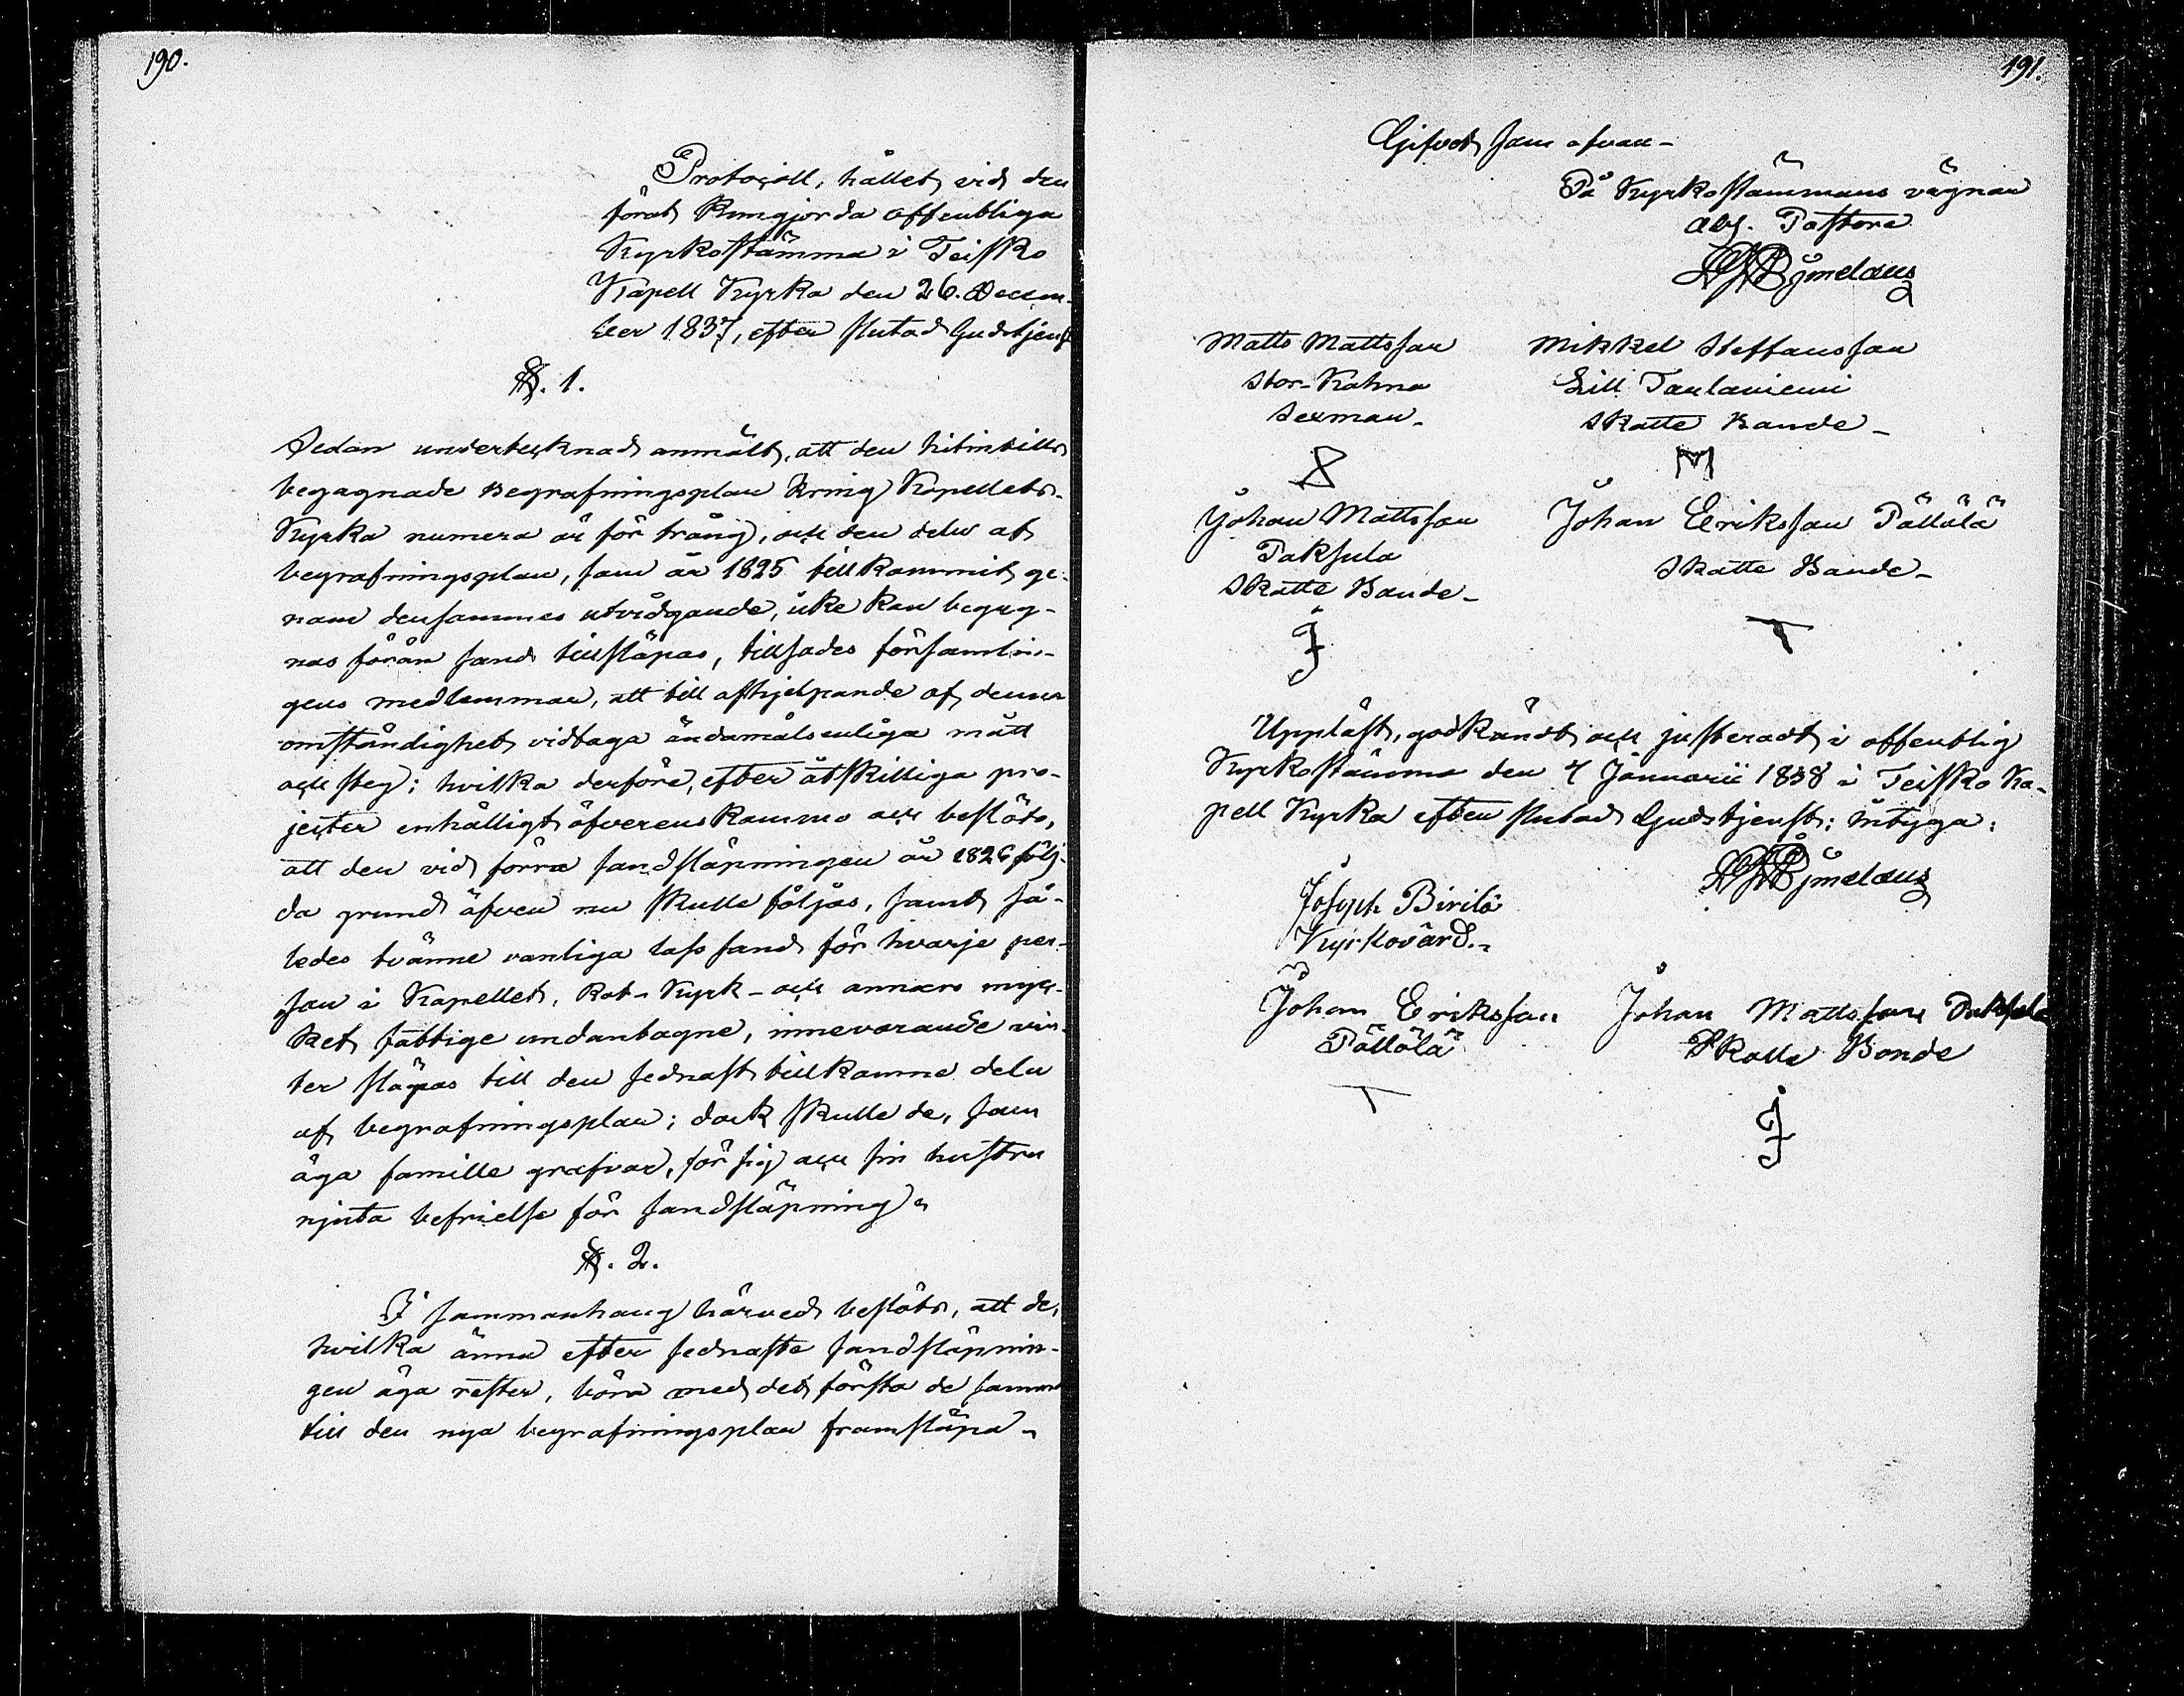 190.
Protocoll, hållet vid den
förut kungjorda offentliga
Kyrkostämma i Teisko
Kapell Kyrka den 26. Decem-
ber 1837, efter slutad Gudstjenst
§. 1.
Sedan undertecknad anmält, att den hitintills
begagnade Begrafningsplan kring Kapellets
Kyrka numera är för trång, och den delen af
begrafningsplan, som år 1825 tillkommit ge-
nom densammes utvidgande, icke kan begag-
nas förän sand tillsläpas, tillsades församlin-
gens medlemmar, att till afhjelpande af denna
omständighet vidtaga ändamålsenliga mått
och steg; hvilka derföre, efter åtskilliga pro-
jecter enhälligt öfverenskommo och beslöto,
att den vid förra sandsläpningen år 1826 följ-
da grund äfven nu skulle följas, samt så-
ledes tvänne vanliga lass sand för hvarje per-
son i Kapellet, Rot- Kyrk- och annars myc-
ket fattige undantagne, innevarande vin-
ter släpas till den sednast tillkomne delen
af begrafningsplan; dock skulle de, som
äga famille grafvar, för sig och sin hustru
njuta befrielse för sandsläpning.
§. 2.
I sammanhang härved beslöts, att de,
hvilka ännu efter sednaste sandsläpnin-
gen äga rester, böra med det första de samma
till den nya begrafningsplan framsläpa.
191.
Gifvet som ofvan
På Kyrkostämmans vägnar
Adj. Pastore
Matts Mattsson
Stor-Kahna
Sexman
Mikkel Steffansson
Lill Taulaniemi
Skatte Bonde
M
Johan Mattsson
Paksula
Skatte Bonde
Johan Eriksson Pällälä
Skatte Bonde
T
Uppläst, godkändt och justeradt i offentlig
Kyrkostämma den 7 Januarii 1838 i Teisko Ka-
pell Kyrka efter slutad Gudstjenst; intyga:
Joseph Birilä
Kyrkovärd.
Johan Eriksson
Pällälä
T
Johan Mattsson Paksula
Skatte Bonde